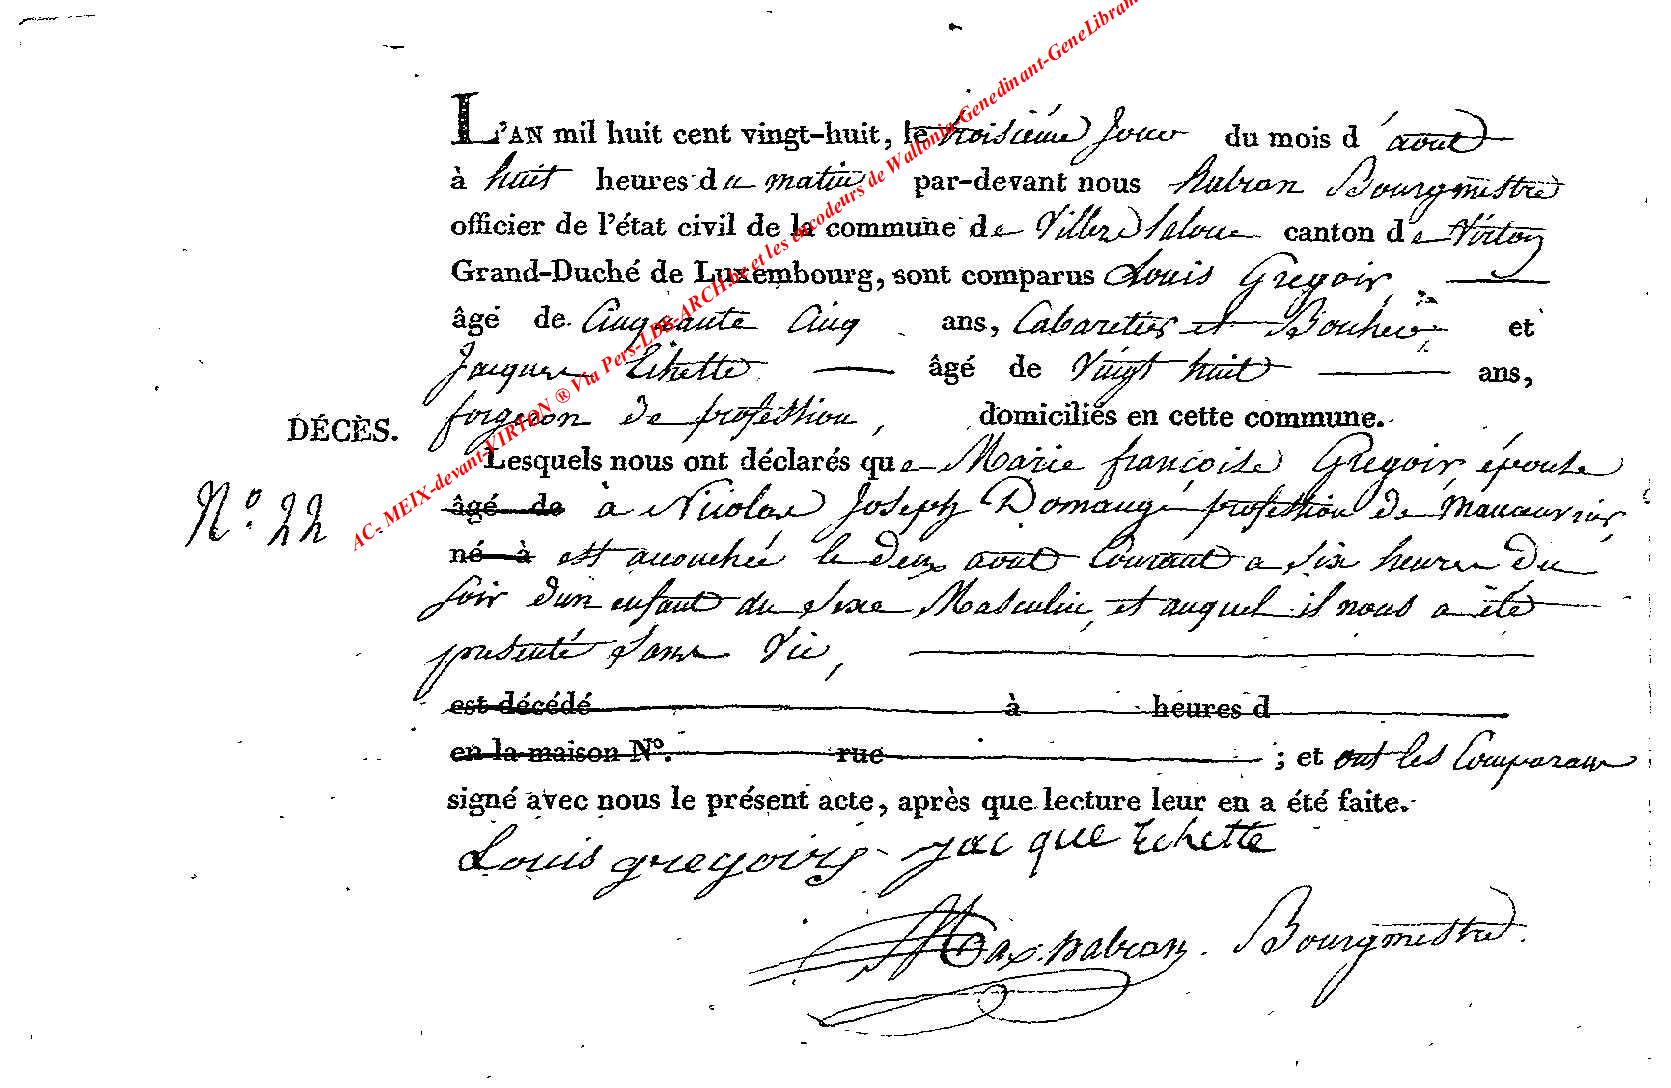 L'AN mil huit cent vingt-huit, le troisième jour du mois d'aout
à huit heures du matin par-devant nous habran Bourgmestre
officier de l'état civil de la commune de Villers laloue canton de Virton
Grand-Duché de Luxembourg, sont comparus Louis Gregoir,
âgé de Cinquante Cinq ans, Cabaretier et Boucher, et
Jacques Echette âgé de Vingt huit ans,
forgeron de profession, domiciliés en cette commune.
DÉCÈS.
Lesquels nous ont déclarés que Marie françoise Gregoir, épouse
N.º 22
âgé de à Nicolas Joseph Domange profession de Manoeuvrier
né à est accouchée le deux aout Courant a six heures du
soir d'un enfant du sexe Masculin, et auquel il nous a été
presenté sans Vie,
est décédé à heures d
en la maison Nº. rue ; et ont les Comparans
signé avec nous le présent acte, après que lecture leur en a été faite.
Louis gregoire jacque Echette
Max. habran. Bourgmestre.
AC- MEIX-devant-VIRTON ® Via Pers-LDS-ARCH.be et les encodeurs de Wallonia-Genedinant-GeneLibram